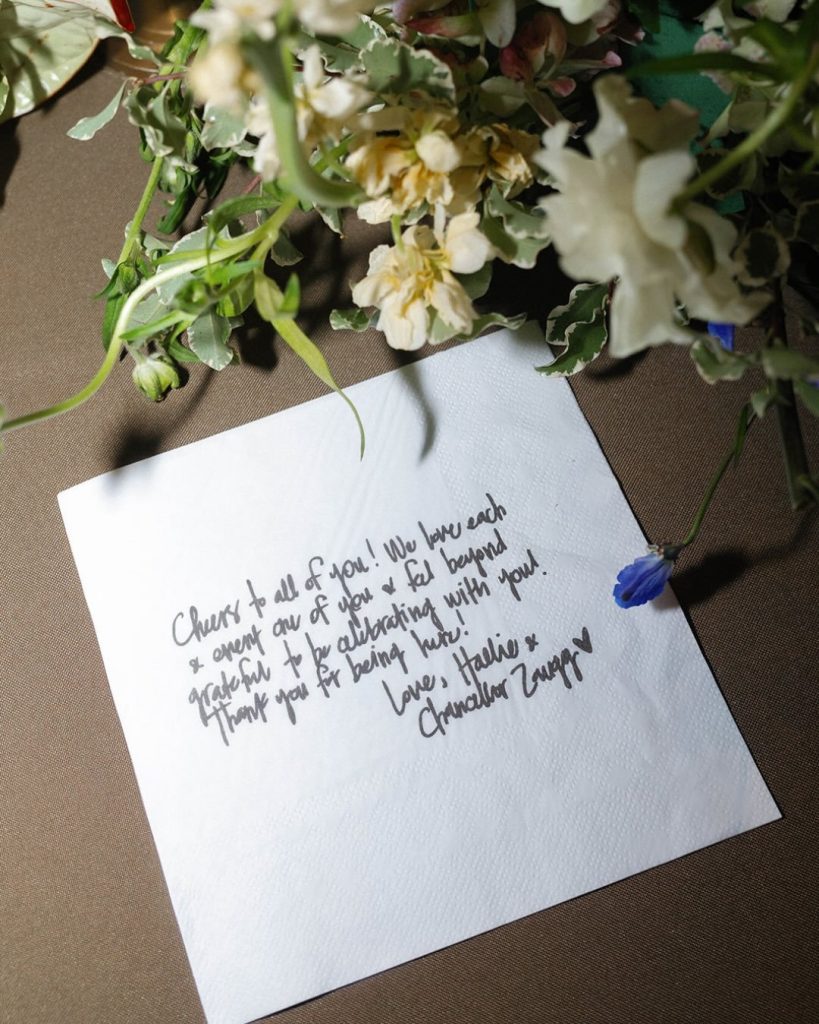 Cheers to all of you! We love each
& every one of you & feel beyond
grateful to be celebrating with you!
Thank you for being here!
Love, Hallie &
Chancellor Zaugg ♥